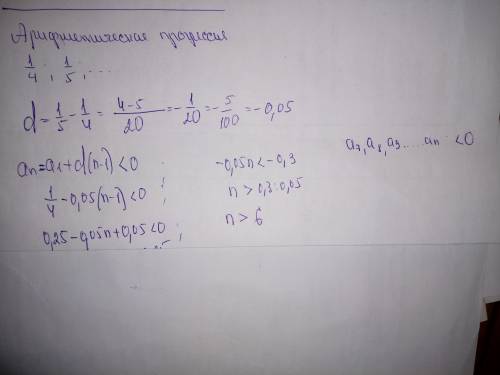 Арифметическая прогрессия
1/4 ; 1/5 ; ...
d = 1/5 - 1/4 = (4-5)/20 = -1/20 = -5/100 = -0,05
an = a1 + d(n-1) < 0
1/4 - 0,05(n-1) < 0 ;
0,25 - 0,05n + 0,05 < 0 ;
-0,05n < -0,3
n > 0,3 : 0,05
n > 6
a7, a8, a9 .... an < 0